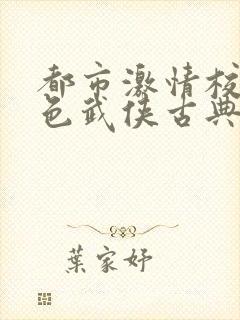 都市激情校
色武侠古典
葉家妤